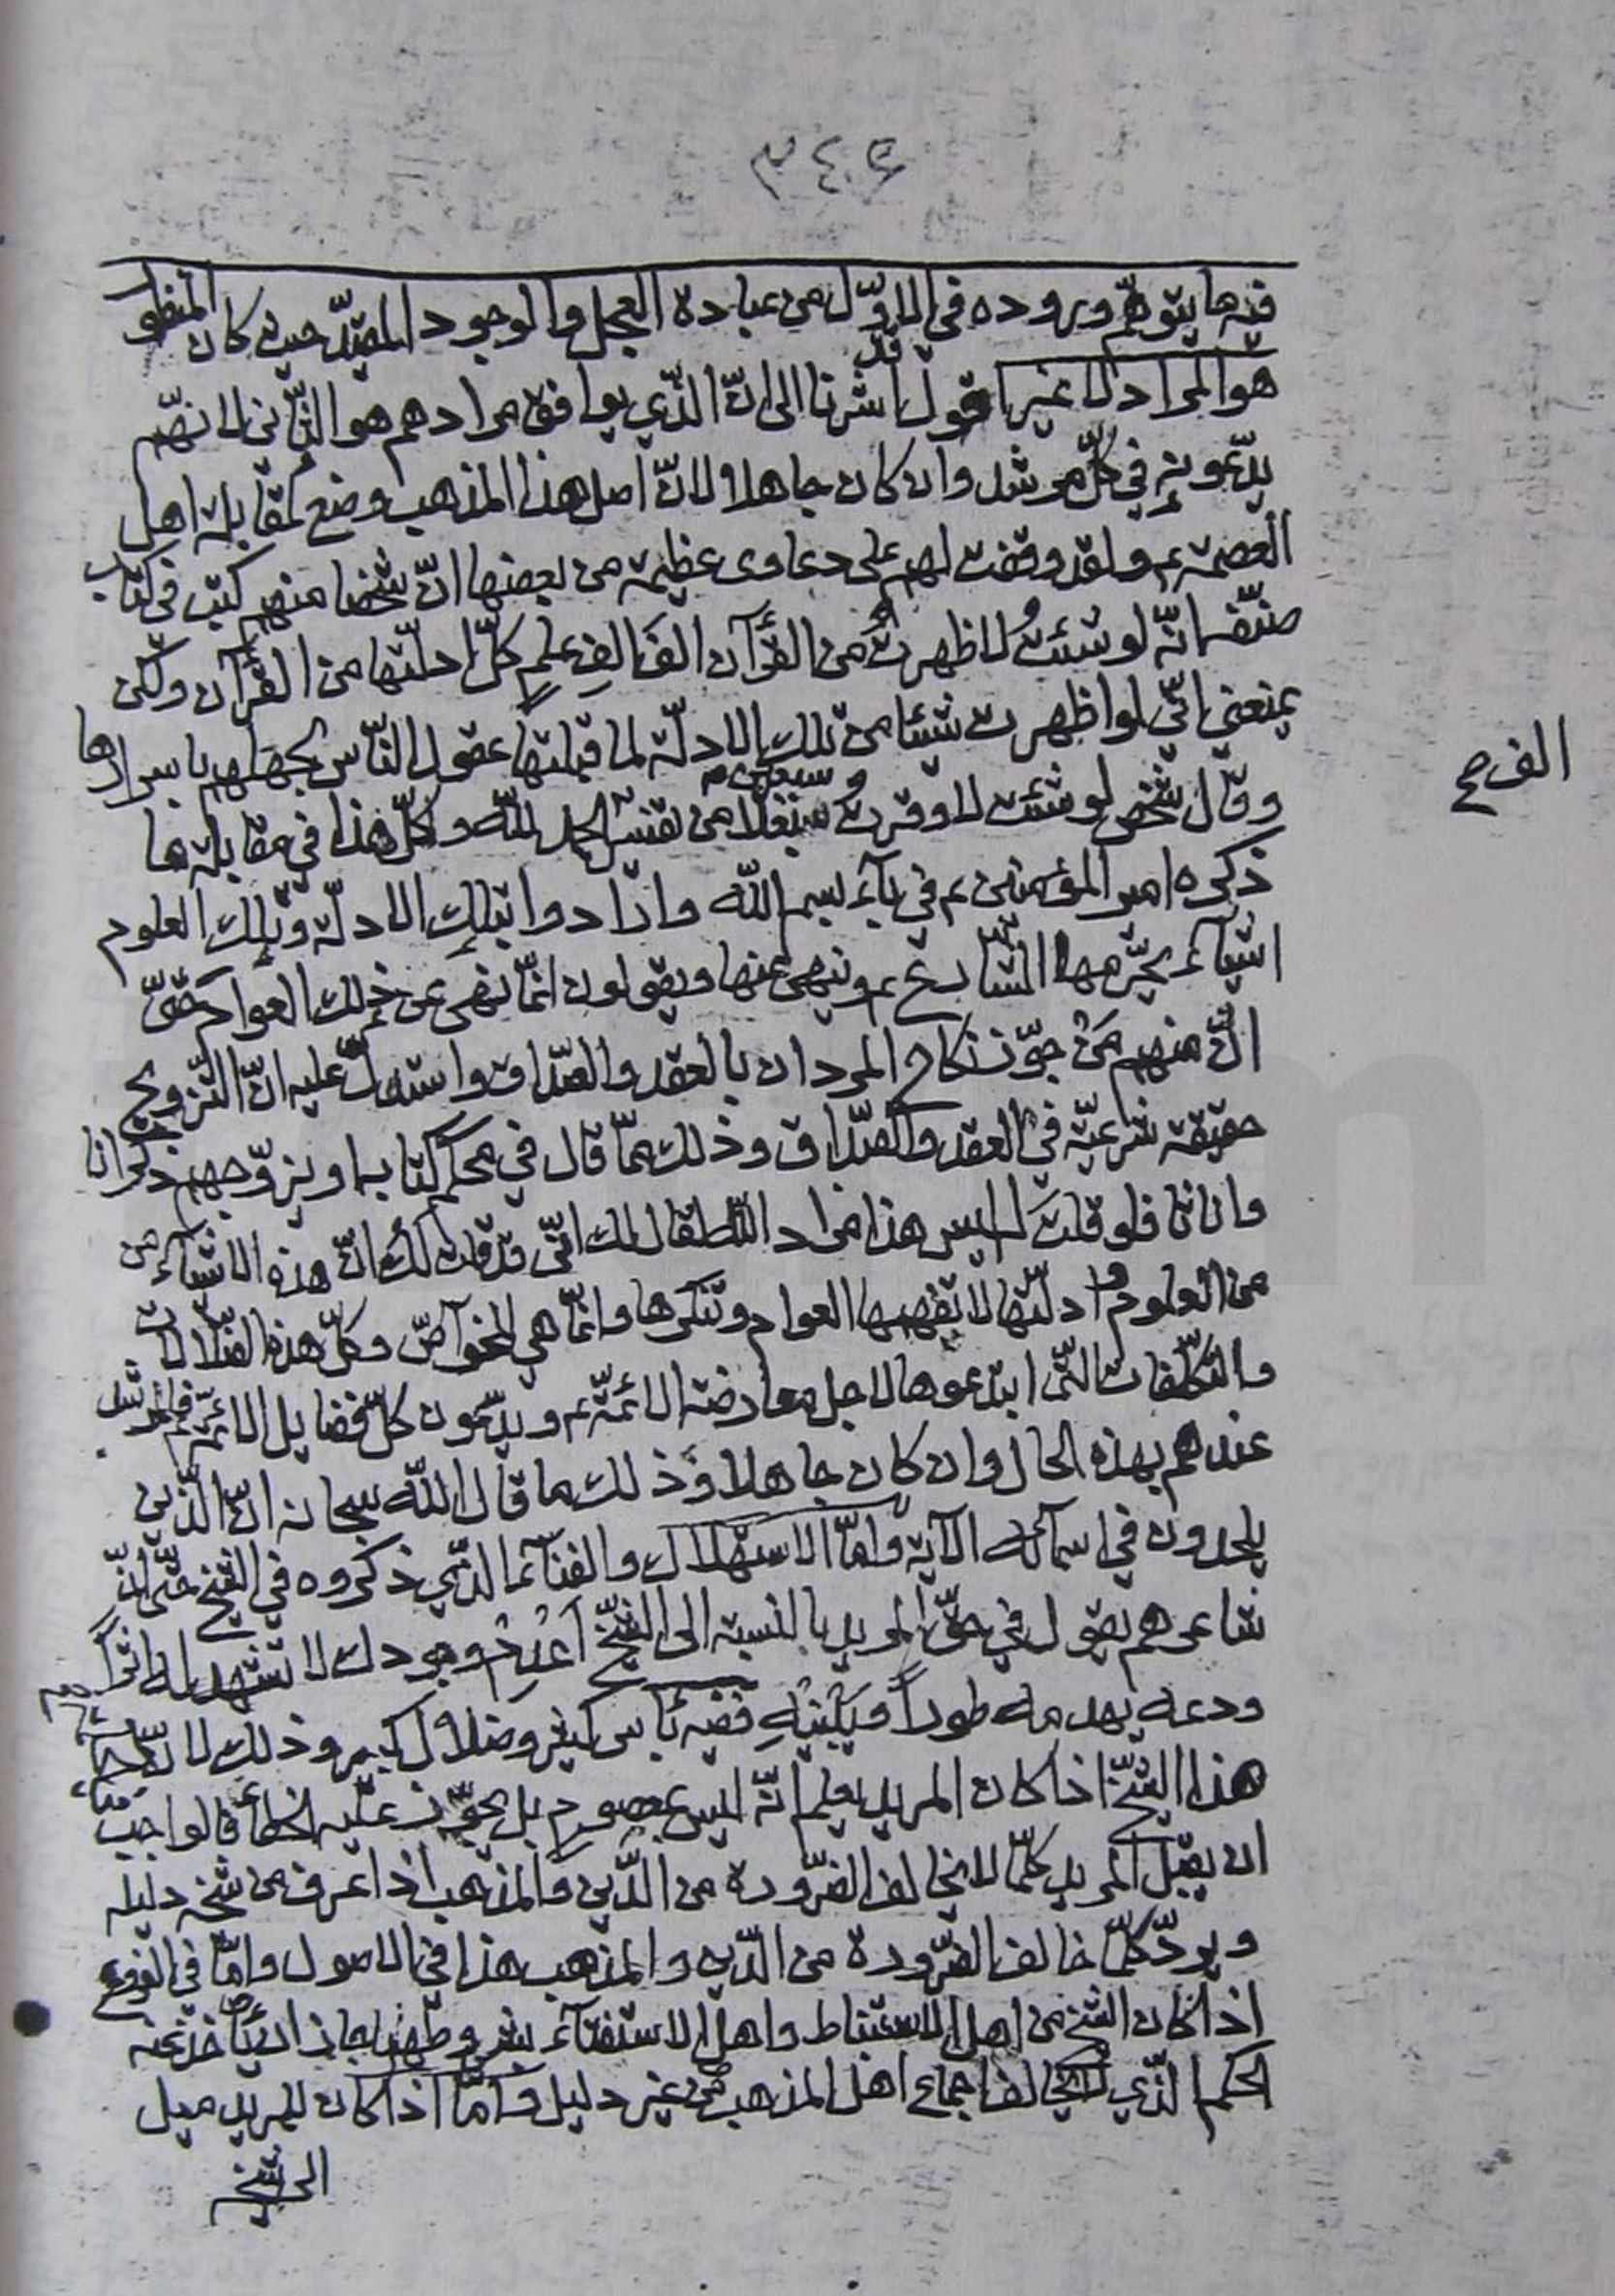 ٣٤٤
فيه ما يتوهّم وروده في الاوّل من عبادة العجل والوجود المقيّد حيث كان المنظور
هو المراد لا غير اقول قد اشرنا الى انّ الذي يوافق مرادهم هو الثاني لانّهم
يدّعونه في كلّ مرشد وان كان جاهلا لانّ اصل هذا المذهب وضع لمقابلة اهل
العصمة ع ولقد وقفت لهم على دعاوى عظيمة من بعضها انّ شخصا منهم كتب في كتاب
صنّفه انّه لو شئتُ لاظهرتُ من القرآن الفَ الفِ علمٍ كلّ ادلّتها من القرآن ولكن
يمنعني انّي لو اظهرت شيئا من تلك الادلّة لما قبلتها عقول الناس لجهلهم باسرارها
وقال شخص لو شئت لاوقرتُ سبعين بغلا من تفسير الحمد للّه وكلّ هذا في مقابلة ما
الف صح
ذكره امير المؤمنين ع في بآء بسم اللّه وارادوا بتلك الادلّة وتلك العلوم
اشيآء يحرّمها الشارع ع وينهى عنها ويقولون انّما نهى عن ذلك العوام حتّى
انّ منهم مَن جوّز نكاح المردان بالعقد والصّداق واستدلّ عليه انّ التزويج
حقيقة شرعيّة في العقد والصّداق وذلك ممّا قال في محكم كتابه او يزوّجهم ذكرانا
واناثا فلو قلتَ له ليس هذا مراد اللّه لقال لك انّي قد قلت لك انّ هذه الاشيآء من
من العلوم وادلّتها لا يفهمها العوام وتنكرها وانّما هي للخوآصّ وكلّ هذه الضّلالات
والتكلّفات التّي ابتدعوها لاجل معارضة الائمّة ع ويدّعون كلّ فضايل الائمّة ع فالمرشد
عندهم بهذه الحال وان كان جاهلا وذلك ما قال اللّه سبحانه انّ الذين
يلحدون في اسمائه الآية وامّا الاستهلاك والفنآء الذي ذكروه في الشيخ حتّى انّ
شاعرهم يقول في حقّ المريد بالنسبة الى الشّيخ اَعْدِمْ وجودك لا تشهد له اثراً
ودعه يهدمه طوراً ويَبْنيهِ ففيه بأس كثير وضلال كبير وذلك لانّ
هذا الشّيخ اذا كان المريد يعلم انّه ليس بمعصوم بل يجوّز عليه الخطأ فالواجب
ان يقبل المريد كلّما لا يخالف الضّرورة من الدّين والمذهب اذا عرف من شيخه دليله
ويردّ كلّما خالف الضّرورة من الدّين والمذهب هذا في الاصول وامّا في الفروع
اذا كان الشيخ من اهل الاستنباط واهل الاستفتآء بشروطهما جاز ان يأخذ عنه
الحكم الذّي لا يخالف اجماع اهل المذهب من غير دليل وامّا اذا كان للمريد ميل
الى شيخه